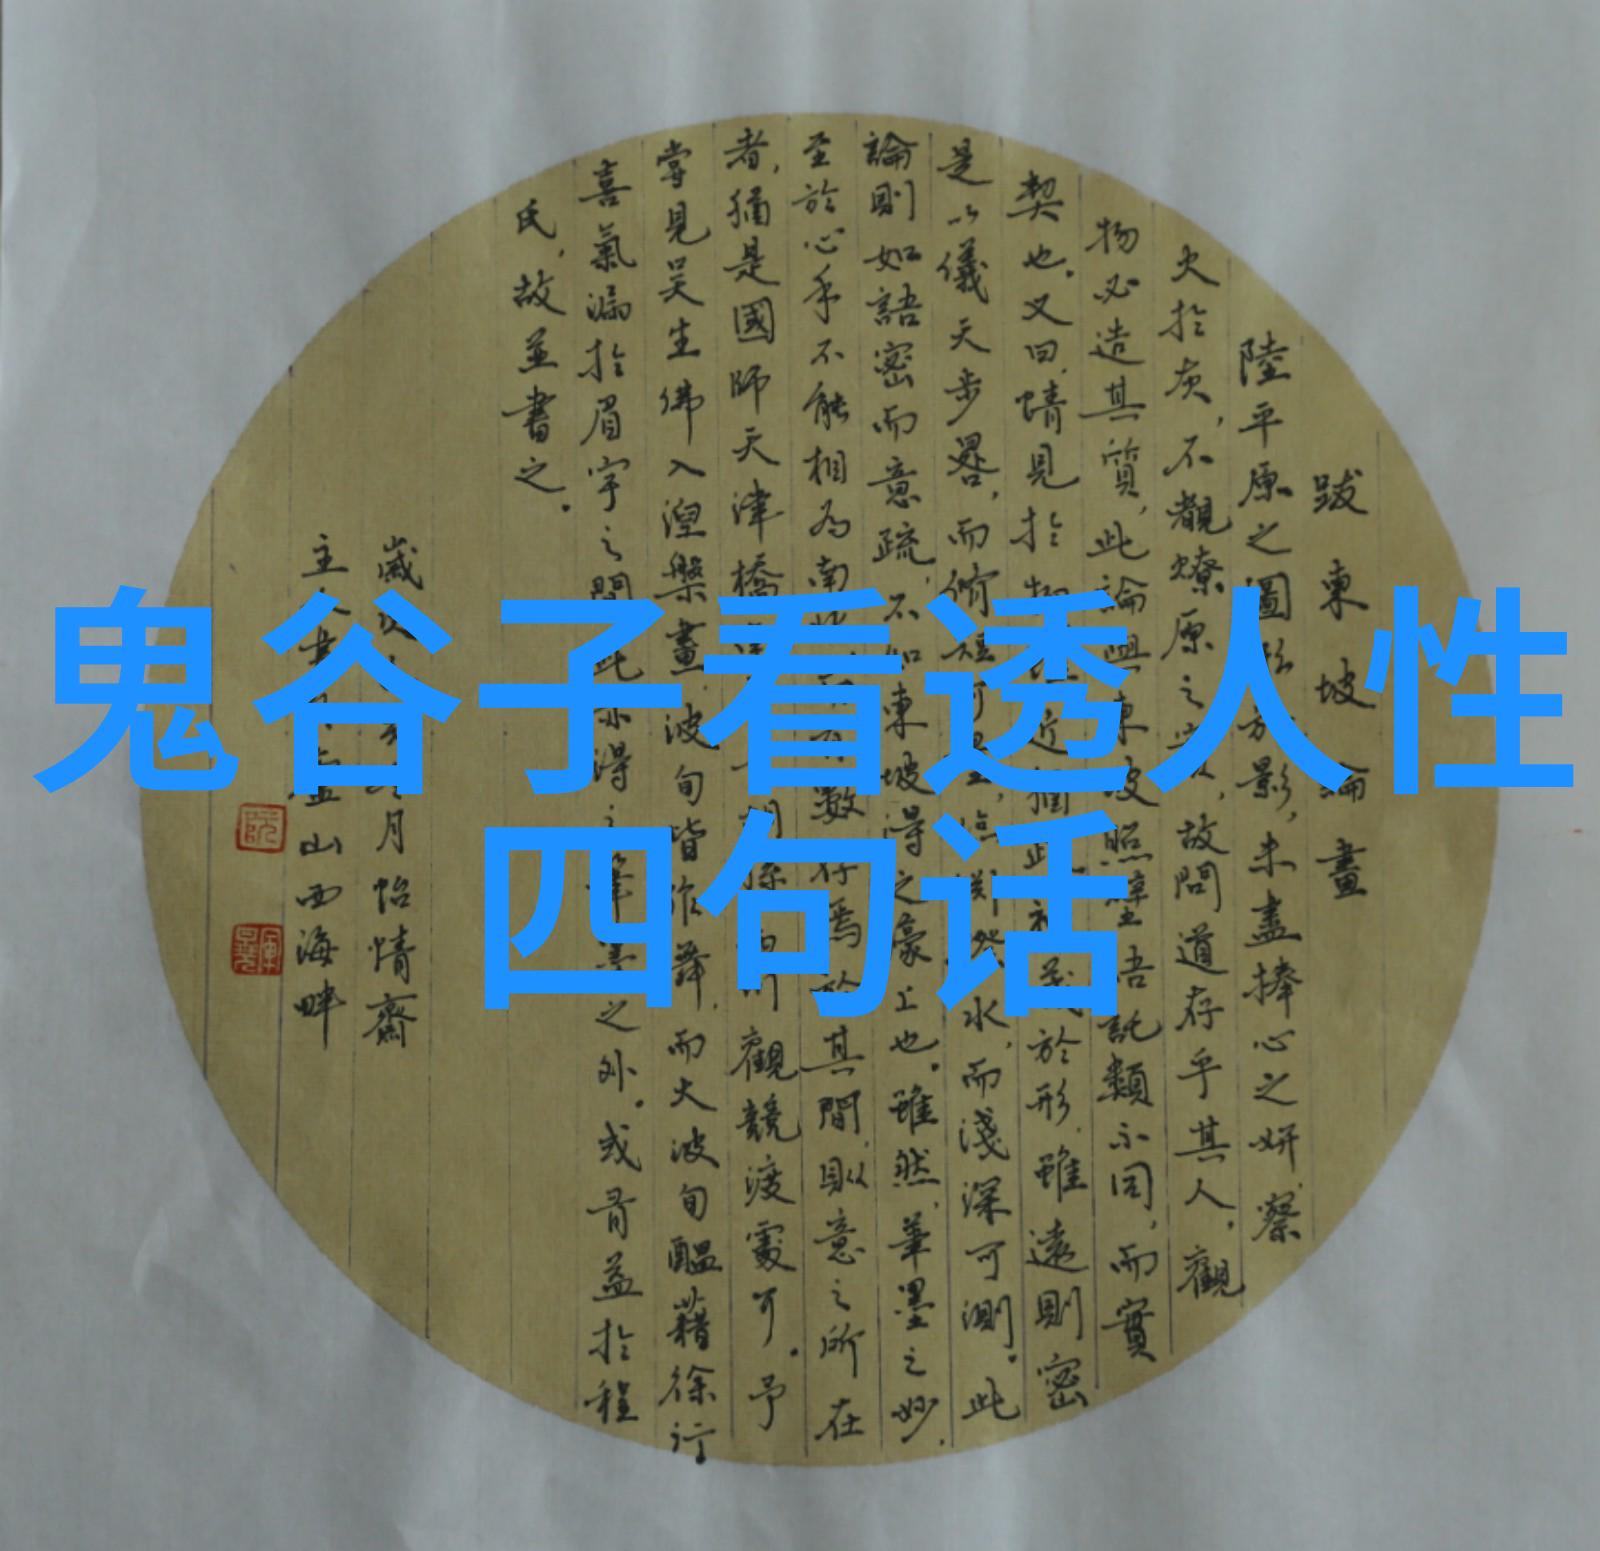 鬼谷子看透人性
四句话
跋東坡論畫
陸平原之圖形於影，未盡捧心之妍，察
火於灰，不覩燎原之，故問道存乎其人，觀
物必造其質，此論與東坡照壁語託類不同，而實
契也。又曰，情見於物，雖近猶於形，雖遠則密
是以儀天步晷，而脩短可量，臨水，而淺深可測。此
論則如語密而意疏，不如東坡得之濠上也。雖然，筆墨之妙，
至於心手不能相為南數存焉於其間，則意之所在
者，猶是國師天津橋觀競渡處耳。予
嘗見吴生佛入涅槃畫，波旬皆作舞，而大波旬醖藉徐行
喜氣漏於眉宇之間，此亦得之筆墨之外。或有益於程
氏，故並書之。
歲月怡情齋
主人山西海畔